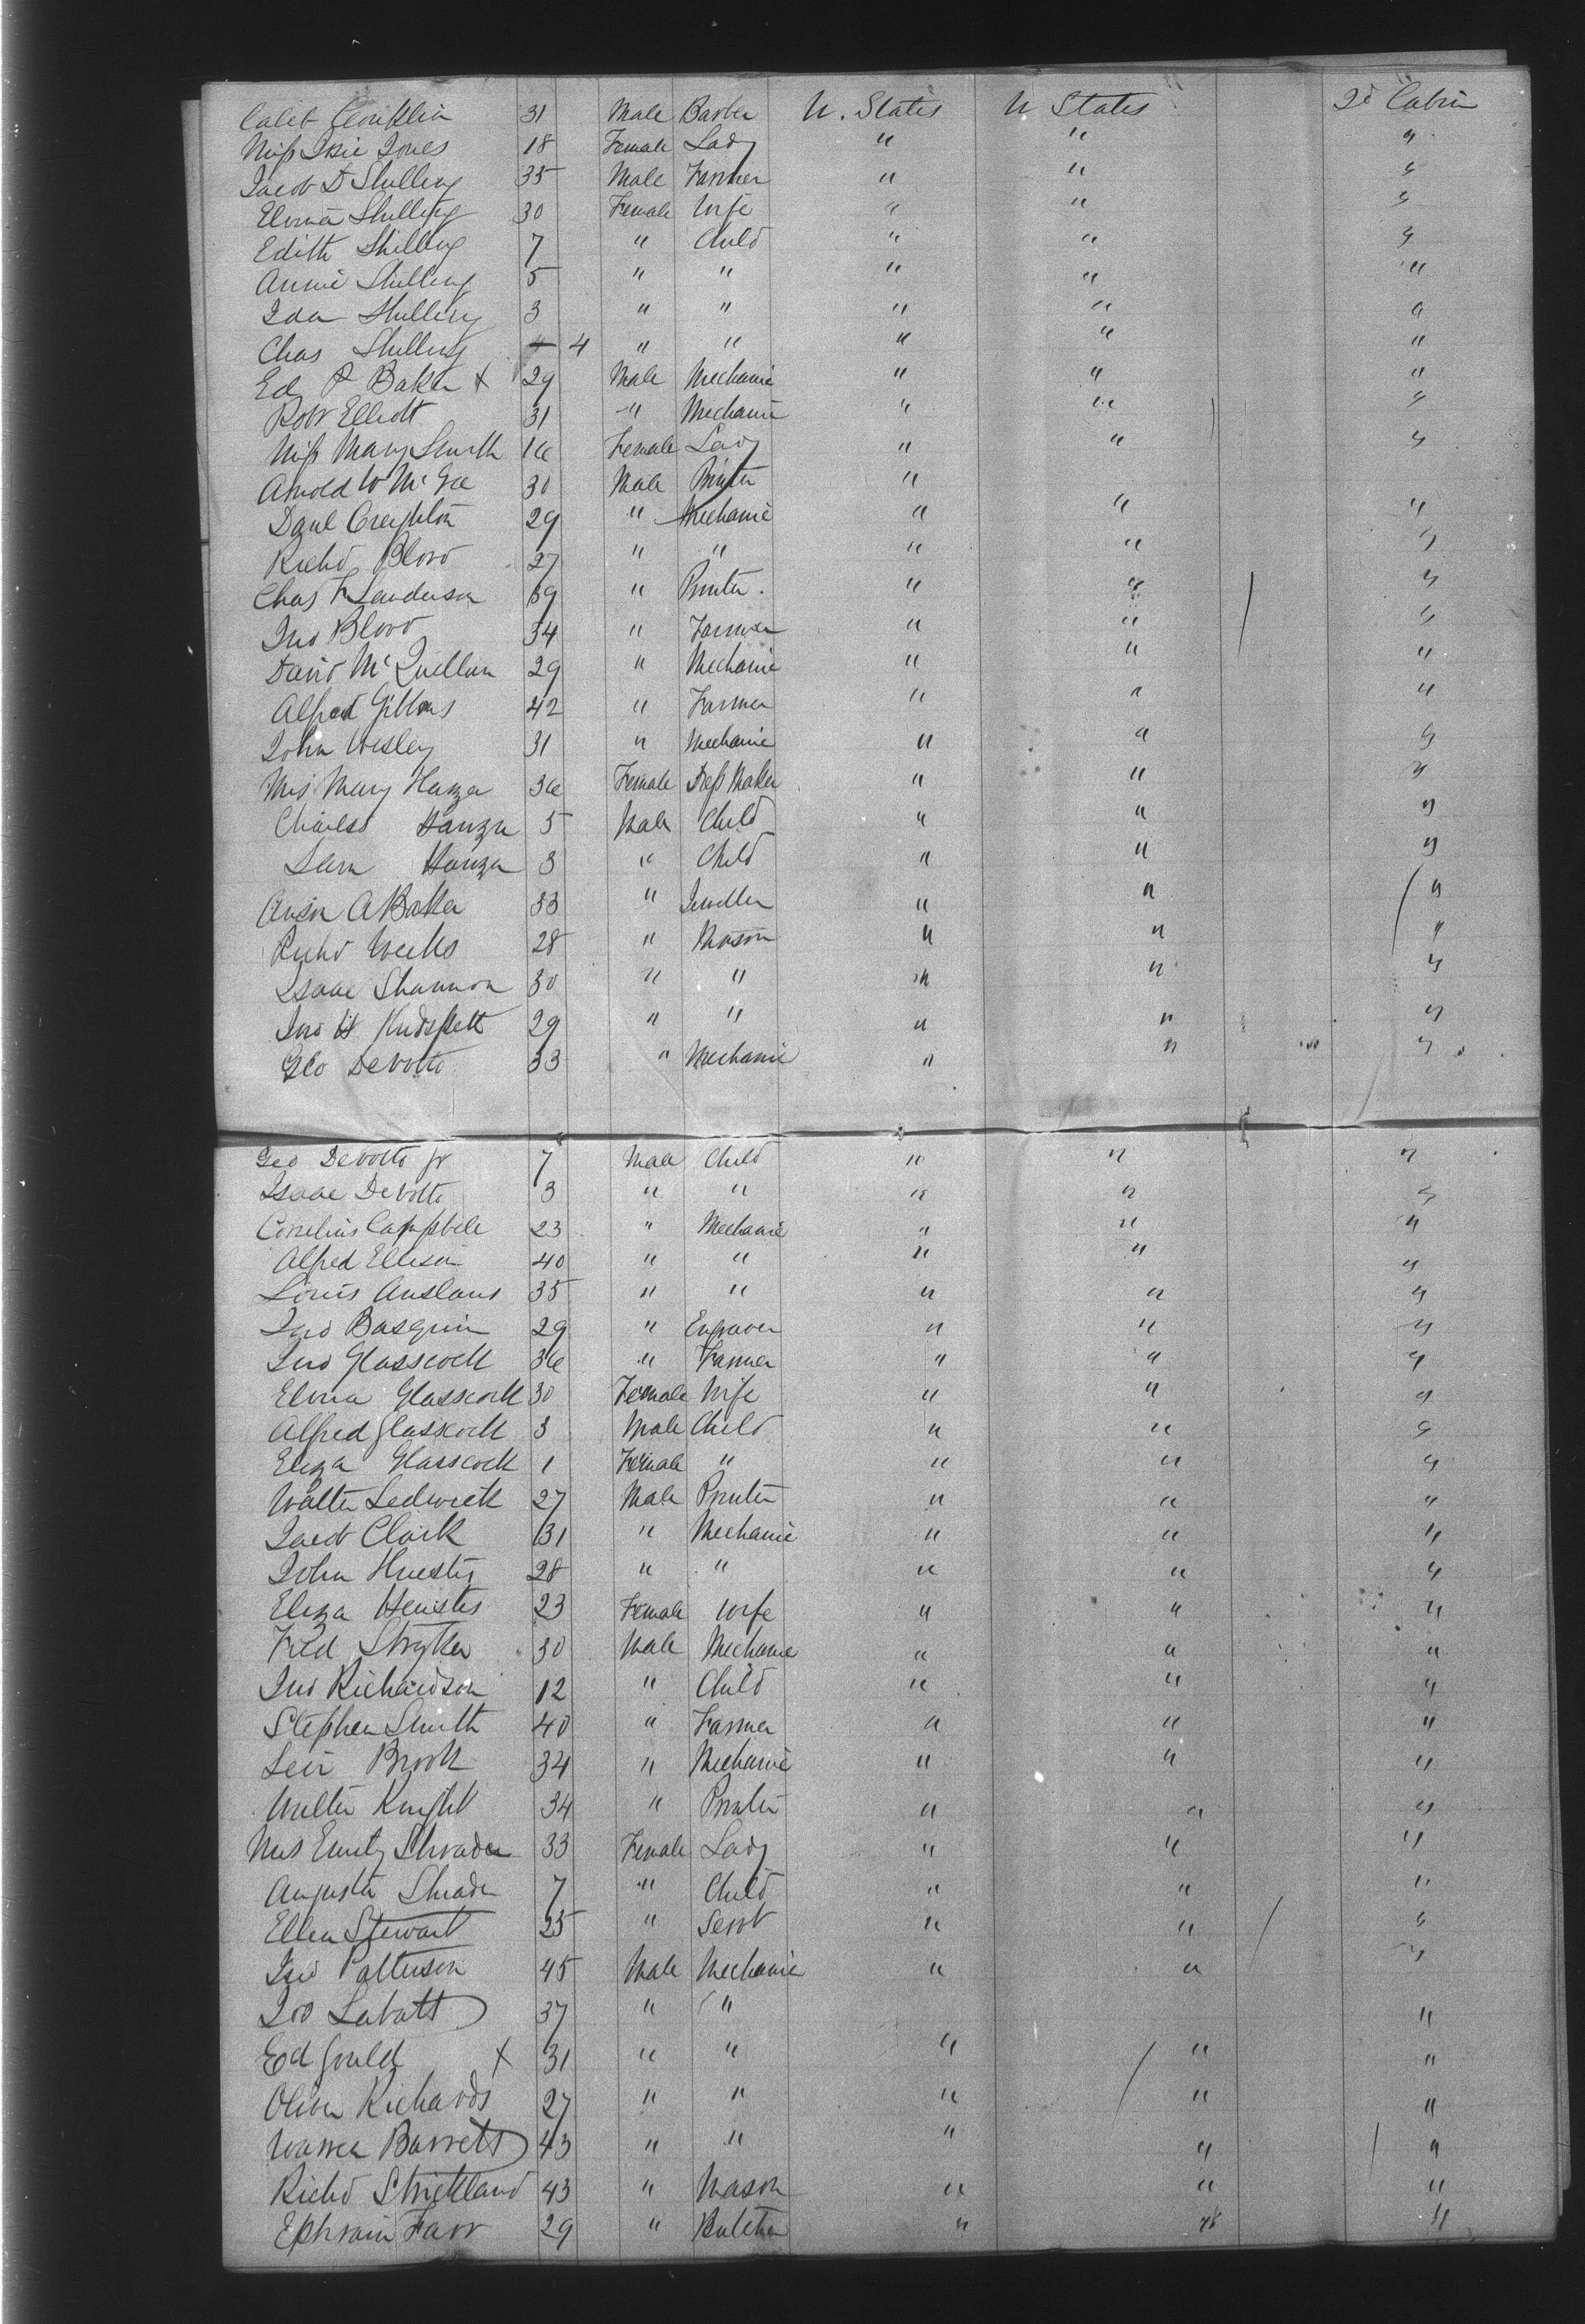 Caleb Conklin 31 Male Barber U. States U States 2d Cabin
Miss Isie Jones 18 Female Lady " " "
Jacob D Shilling 35 Male Farmer " " "
Elvina Shilling 30 Female Wife " " "
Edith Shilling 7 " Child " " "
Annie Shilling 5 " " " " "
Ida Shilling 3 " " " " "
Chas Shilling 4 " " " " "
Ed P Baker X 29 Male Mechanic " " "
Robt Elliott 31 " Mechanic " " "
Miss Mary Smith 16 Female Lady " " "
Arnold W McGee 30 Male Printer "
Danl Creighton 29 " Mechanic " " "
Richd Blood 27 " " " " "
Chas F Sanderson 39 " Printer . " " "
Jno Blood 34 " Farmer " " "
David McQuellan 29 " Mechanic " " "
Alfred Gibbons 42 " Farmer " " "
John Wesley 31 " Mechanic " " "
Mrs Mary Hanza 36 Female Dress Maker " " "
Charles Hanza 5 Male Child " " "
Hanza 3 " Child " " "
Anson A Baker 33 " Jeweller " " "
Richd Weeks 28 " Mason " " "
Isaac Shannon 30 " " " " "
Jno H Hudspett 29 " " " " "
Geo Devotto 33 " Mechanic " " "
Geo Devotto Jr 7 Male Child " " "
Isaac Devotto 3 " " " " "
Cornelius Campbell 23 " Mechanic " " "
Alfred Ellison 40 " " " " "
Louis Anslaus 35 " " " " "
Jno Basquin 29 " Engraver " " "
Jno Glasscock 36 " Farmer " " "
Elvina Glasscock 30 Female Wife " " "
Alfred Glasscock 3 Male Child " " "
Eliza Glasscock 1 Female " " " "
Walter Ledwick 27 Male Printer " " "
Jacob Clark 31 " Mechanic " " "
John Huestis 28 " " " " "
Eliza Heustis 23 Female Wife " " "
Fred Stryker 30 Male Mechanic " " "
Jno Richardson 12 " Child " " "
Stephen Smith 40 " Farmer " " "
Levi Brook 34 " Mechanic " " "
Walter Knight 34 " Printer " " "
Mrs Emily Shrader 33 Female Lady " " "
Augusta Shrader 7 " Child " " "
Ellen Stewart 25 " Servt " " "
Jno Patterson 45 Male Mechanic " " "
Labatt 37 " " "
Ed Gould X 31 " " " " "
Oliver Richards 27 " " " " "
Warren Barrett 43 " " " " "
Richd Strickland 43 " Mason " " "
Ephraim Farr 29 " Butcher " " "